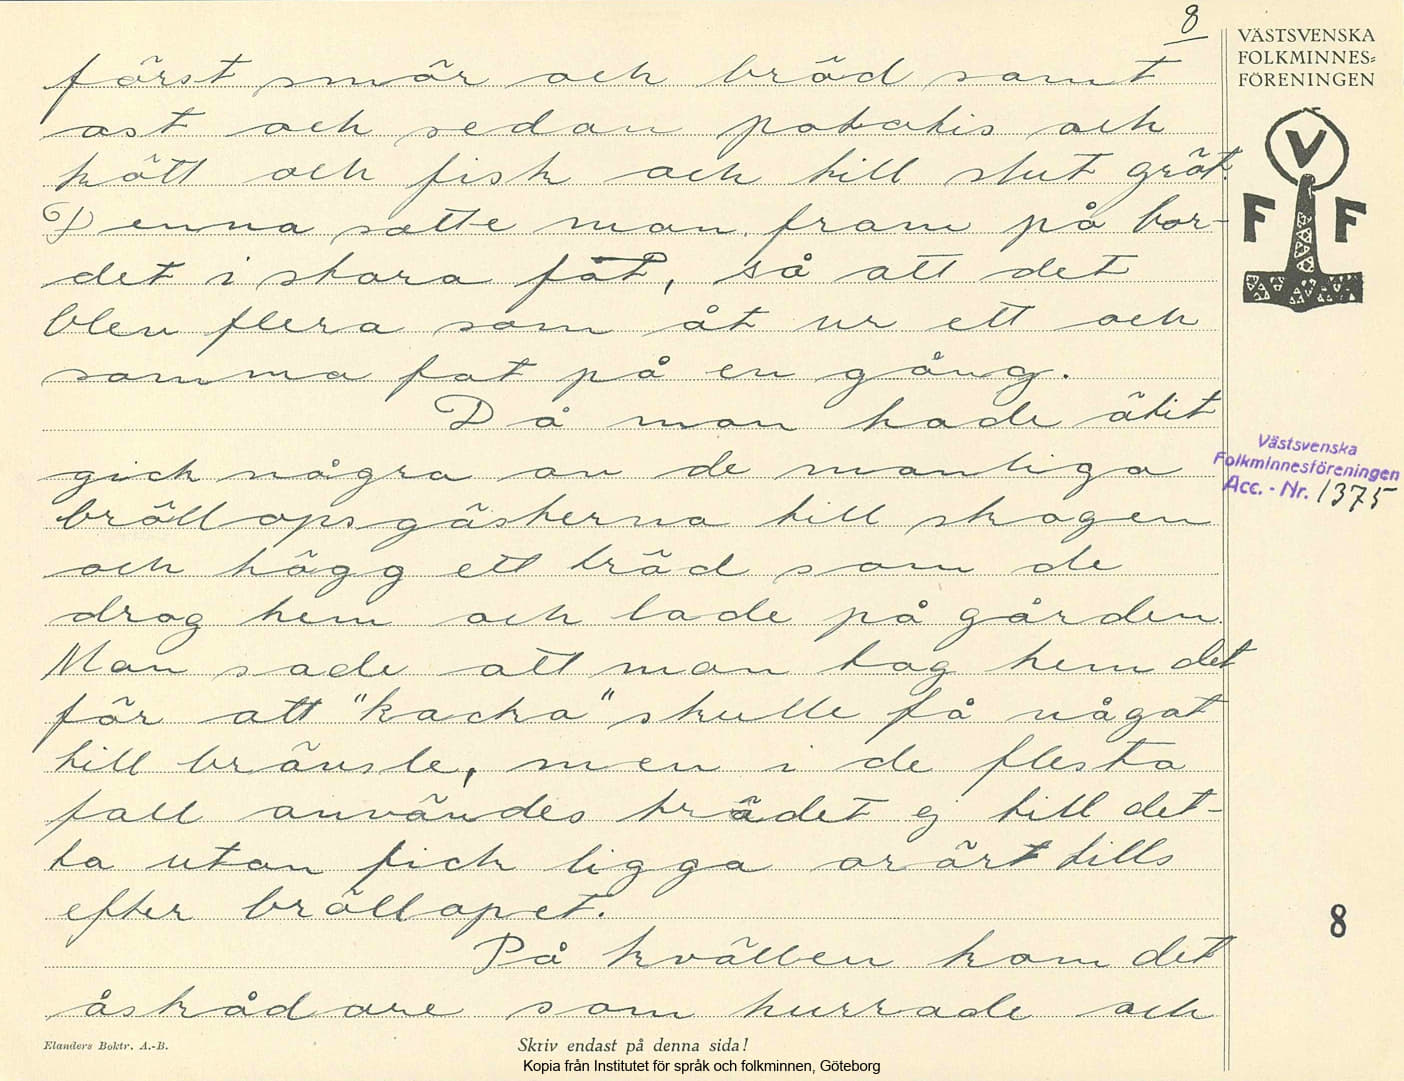 8
VÄSTSVENSKA
FOLKMINNES=
FÖRENINGEN
först smör och bröd samt
ost och sedan potatis och
kött och fisk och till slut gröt.
Denna satte man fram på bor-
det i stora fat, så att det
blev flera som åt ur ett och
samma fat på en gång.
Då man hade ätit
gick några av de manliga
bröllopsgästerna till skogen
och högg ett träd som de
drog hem och lade på gården.
Man sade att man tog hem det
för att "kacka" skulle få något
till bränsle, men i de flesta
fall användes trädet ej till det-
ta utan fick ligga orört tills
efter bröllopet.
På kvällen kom det
åskådare som hurrade och
V
F F
Västsvenska
Folkminnesföreningen
Acc. - Nr. 1375
8
Elanders Boktr. A.-B.
Skriv endast på denna sida!
Kopia från Institutet för språk och folkminnen, Göteborg